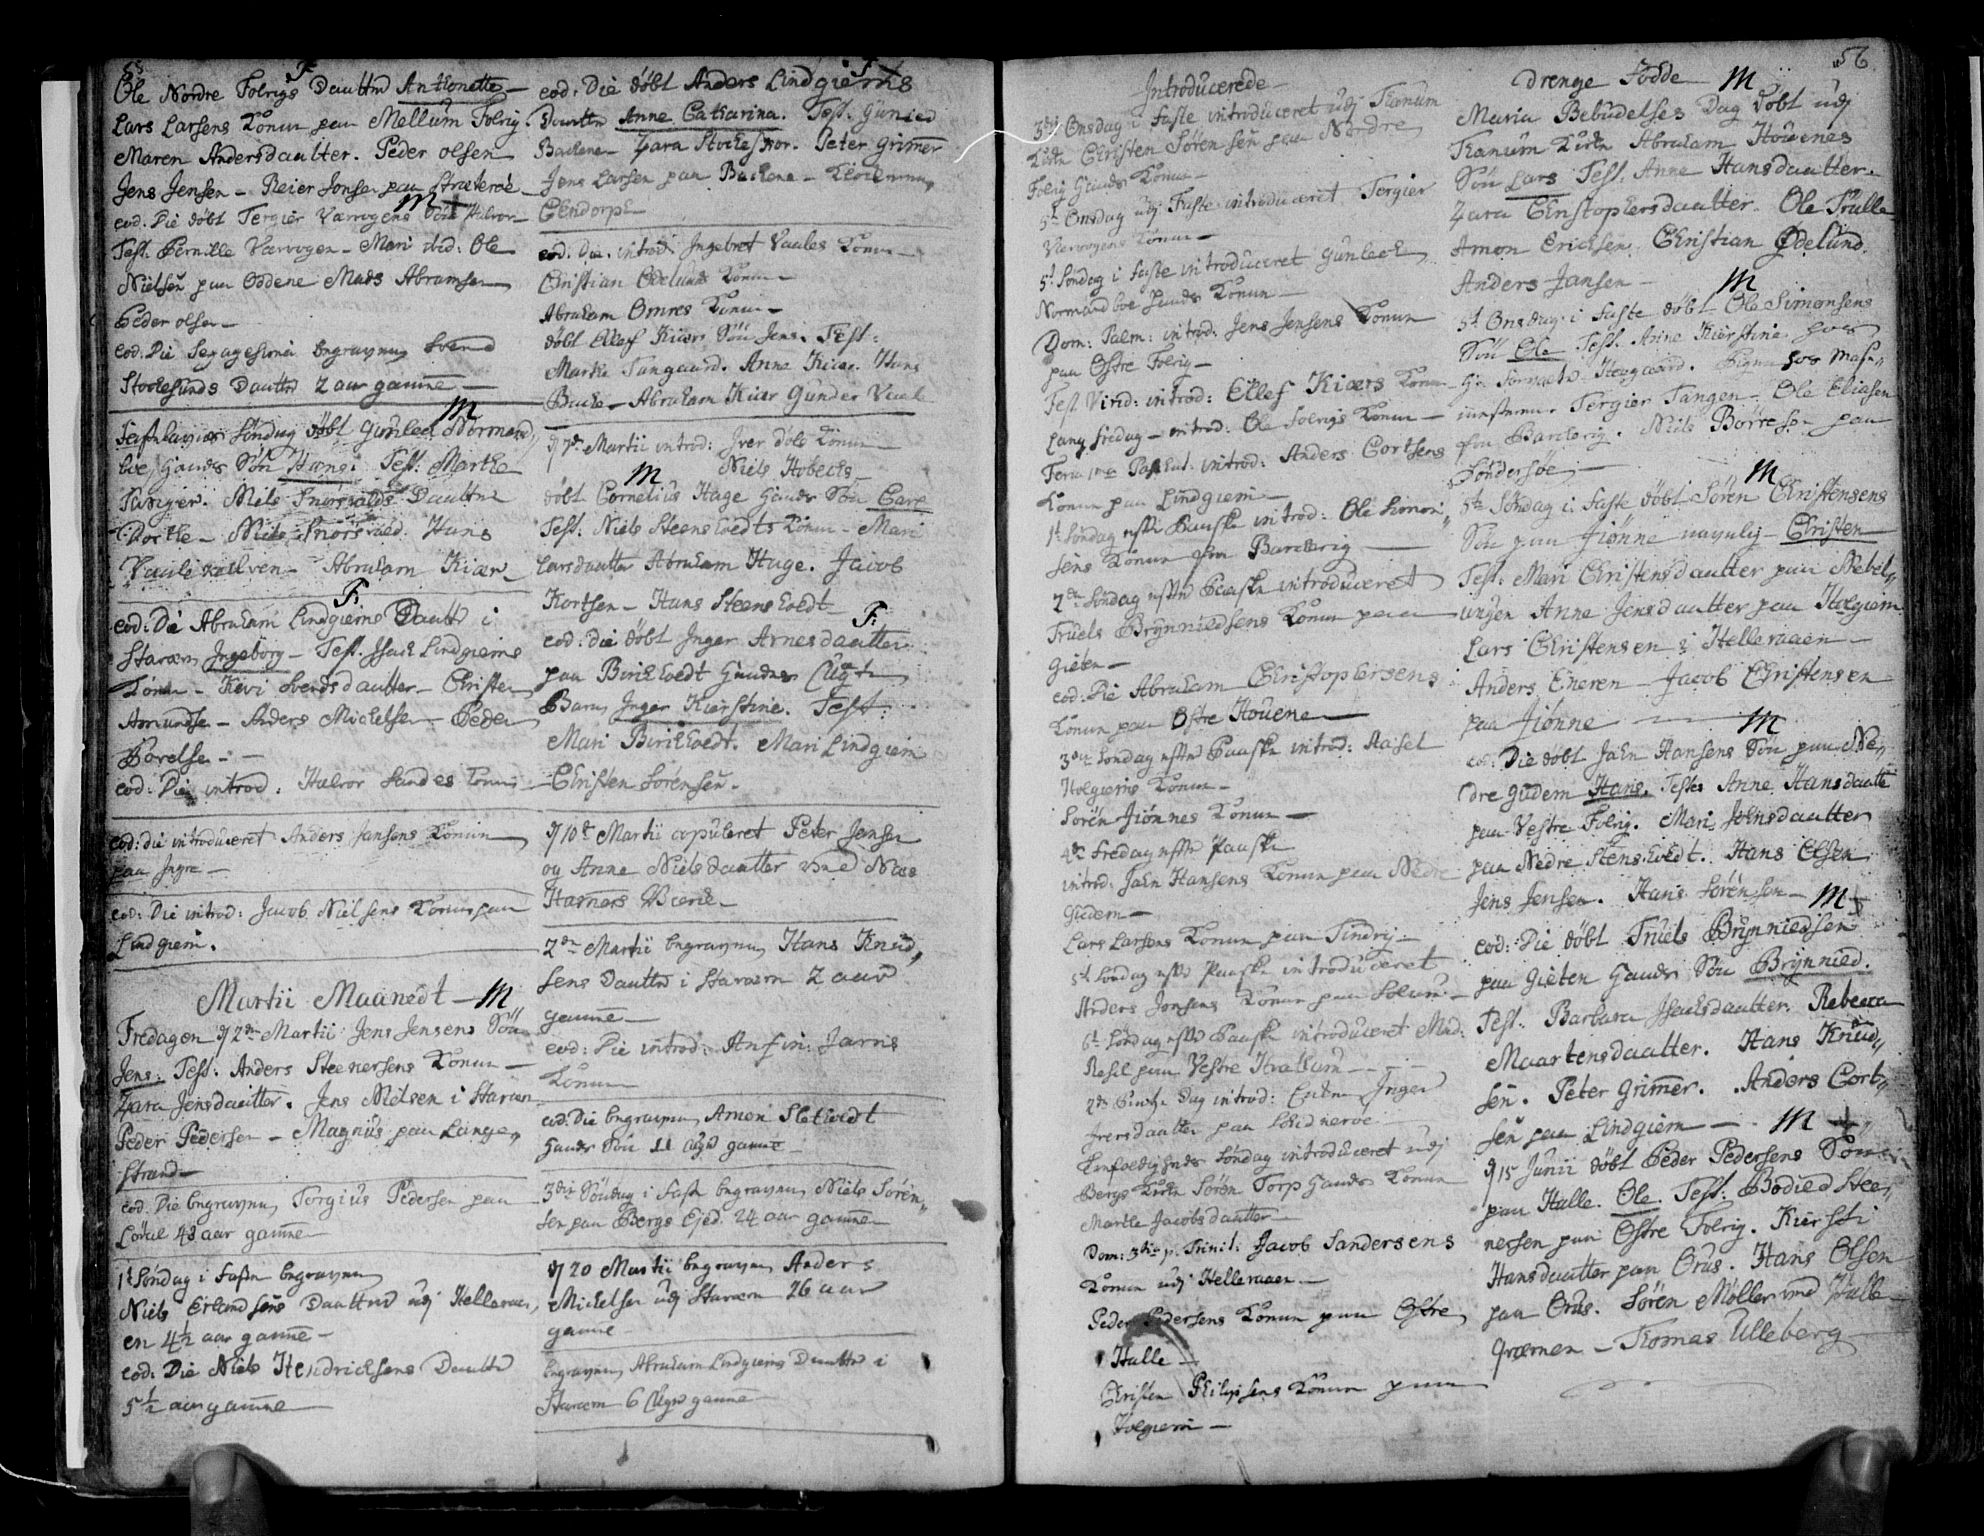 55
F
Ole Nordre Folrigs Daatter Anthonette
Lars Larsens Konen paa Mellum Folrig.
Maren Andersdaatter. Peder Olsen
Jens Jensen - Reier Jonsen paa Stræteröe
M
eod: Die döbt Tergier Værvogens Sön Halvor
Test. Pernille Værvogen - Mari ibid: Ole
Nielsen paa Oddene Mads Abramsen
Peder Olsen
eod: Die begraven Svend
Stochesunds Daatter 2 aar gamme
M
Fastelavens Söndag döbt Gunleck Normand
boe Hans Sön Hans. Test: Marthe
Tangier. Niels Snorsvalds Daatter
Dorthe - Niels Snorsvald. Hans
Vaale kallven - Abraham Kiær
F.
eod: Die Abraham Lindgiems Daatter i
Starærn Ingeborg - Test. Isach Lindgiems
Konen - Kevi Overdsdaatter - Christen
Amundsen - Anders Michelsen - Peder
Borelsen
eod: Die introd: Halvor Sandes Konen
eod: die introduceret Anders Jansens Konen
paa Ingre
eod: Die introd: Jacob Nielsens Konen paa
Lindgiem.
Martii Maanedt - M
Fredagen d 2den Martii Jens Jensens Sön
Jens. Test: Anders Steenersens Konen
Zara Jensdaatter. Jens Nielsen i Starærn
Peder Pedersen - Magnus paa Lange
strand
eod: Die begraven Torgius Pedersen paa
Löval 48 aar gamme
1t Söndag i Fasten begraven
Niels Erlandsens Daatter udj Helleraa
en 4½ aar gamme
eod: Die Niels Hendrichsens Daatter
5½ aar gamme
F
eod: Die döbt Anders Lindgiems
Daatter Anne Catharina. Test. Gunied
Bachene - Zara Stochestrør. Peter Grimer
Jens Larsen paa Bachene - Clochernen
Clendorph
eod: Die. introd: Ingebret Vaales Konen
Christian Ödelunds Konen
Abraham Omres Konen
döbt Ellef Kiærs Sön Jens. Test:
Marthe Tangaard. Anne Kiær. Hans
Backe - Abraham Kiær Gunder Vaale
d 7de Martii introd: Iver döls Konen
M Niels Hobechs
döbt Cornelius Hage Hans Sön Carl
Test: Niels Steensholdts Konen - Mari
Larsdaatter Abraham Hage. Jacob
Kortsen - Hans Steensholdt
F.
eod: die döbt Inger Arnesdaatter
paa Birkholdt Hendes Uægte
Barn Inger Kierstine. Test:
Mari Birkholdt. Mari Lindgiem
Christen Sörensen.
d 10de Martii copuleret Peter Jensen
og Anne Nielsdaatter ved Næs
Hamers Værck
2den Martii begraven Hans Knud
sens Daatter i Starærn 2 aar
gamme
eod: Die introd: Anfin Jarns
Konen
eod: Die begraven Amon Sletholdt
Hans Sön 11 Uger gamme
3die Söndag i Fasten begraven Niels Sören
sen paa Bergs Ejed. 24 aar gamme
d 20 Martii begraven Anders
Michelsen udj Starærn 26 aar
gamme
begraven Abraham Lindgiems Daatter i
Starærn 6 Uger gamme
Introducerede
3die Onsdag i Faste introduceret udj Tranum
Kirke Christen Sörensen paa Nordre
Folrig Hans Konen
5te Onsdag udj Faste introduceret Tergier
Værvogens Konen
5t Söndag i Faste introduceret Gunleck
Normandboe Hans Konen
Dom: Palm: introd: Jens Jensens Konen
paa Östre Folrig
Fest Virid: introd: Ellef Kiærs Konen
Lang fredag - introd: Ole Folrigs Konen
Feria 1ma Paschat. introd: Anders Cortsens
Konen paa Lindgiem
1t Söndag efter Paaske introd: Ole Simon
sens Konen fra Barderig
2den Söndag efter Paaske introduceret
Truels Brynnieldsens Konen paa
Gieten
eod: Die Abraham Christophersens
Konen paa Östre Houene
3die Söndag efter Paaske introd: Rasel
Holgiems Konen
Sören Fiönnes Konen
4de Fredag efter Paaske
introd: Jahn Hansens Konen paa Nedre
Gudem
Lars Larsens Konen paa Tindri
5t Söndag efter Paaske introduceret
Anders Jonsens Konen paa Solum
6t Söndag efter Paaske introduceret Mad:
Resel paa Vestre Hrættum
2den Pintse Dag introd: Enken Inger
Iversdaatter paa Skidneröe
Trefoldigheds Söndag introduceret udj
Bergs Kirke Sören Torp Hans Konen
Marthe Jacobsdaatter
Dom: 3tia p. Trinit: Jacob Sandersens
Konen udj Helleraaen
Peder Pedersens Konen paa Östre
Halle
Christen Philipsens Konen paa
Holgiem
56
Drenge Födde M
Maria Bebudelses Dag döbt udj
Tranum Kirke Abraham Houenes
Sön Lars Test. Anne Hansdaatter
Zara Christophersdaatter. Ole Trulle
Amon Erichsen. Christian Ödelund.
Anders Jansen
M
5t Onsdag i Faste döbt Ole Simonsens
Sön Ole Test. Anne Kierstine hos
Hr Heegaard. hos Mas
Tergier Tangen. Ole Eliasen
fra Barderig. Niels Börresen paa
Söndersöe
M
5te Söndag i Faste döbt Sören Christensens
Sön paa Fiönne navnlig Christen
Test: Mari Christensdaatter paa Nebel
ungen Anne Jensdaatter paa Holgiem
Lars Christensen i Helleraaen
Anders Eneren - Jacob Christensen
paa Fiönne
M
eod: Die döbt Jahn Hansens Sön paa Ne
dre Gudem Hans. Testes Anne Hansdaatter
paa Vestre Folrig. Mari Johnsdaatter
paa Nedre Stensholdt. Hans Olsen
Jens Jensen. Hans Sörensen
M
eod: Die döbt Truels Brynnieldsen
paa Gieten Hans Sön Brynnield.
Test: Barbara Isachsdaatter. Rebecca
Maartensdaatter. Hans Knud
sen. Peter Grimer. Anders Cort
sen paa Lindgiem
M
d 15 Junii döbt Peder Pedersens Sön
paa Halle. Ole. Test: Bodied Stee
nersen paa Östre Folrig. Kiersti
Hansdaatter paa Orus. Hans Olsen
paa Orus. Sören Möller ved Halle
Qværnen - Thomas Ulleberg